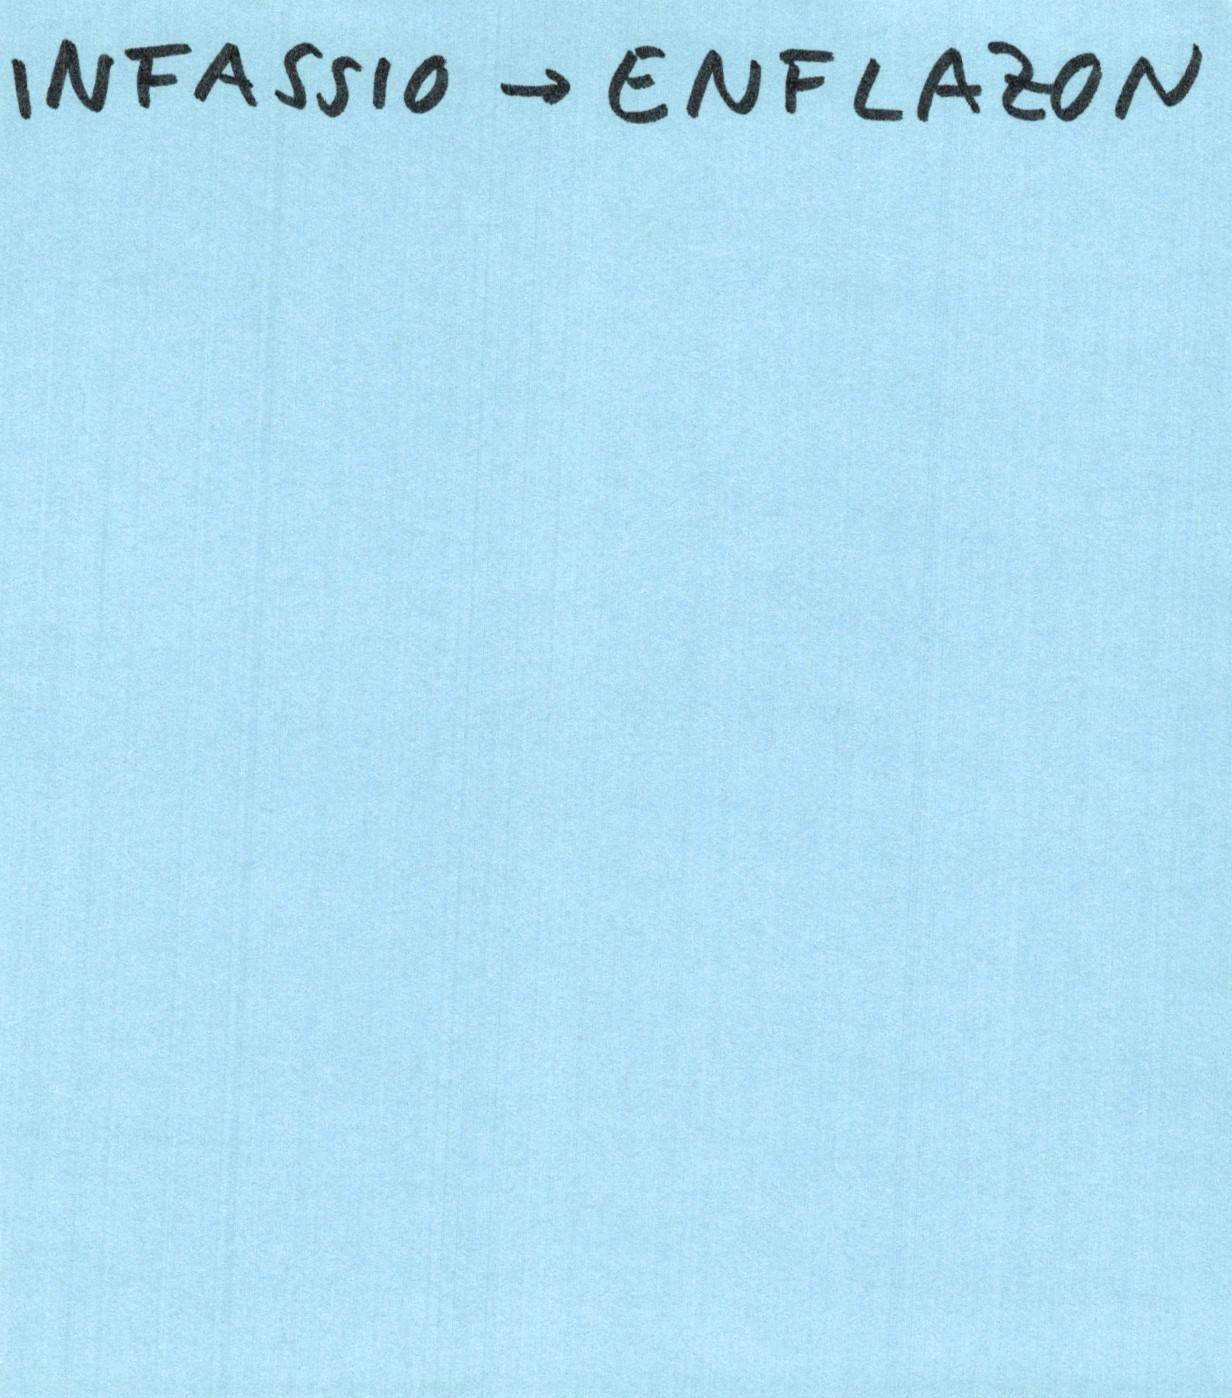 INFASSIO → ENFLAZON